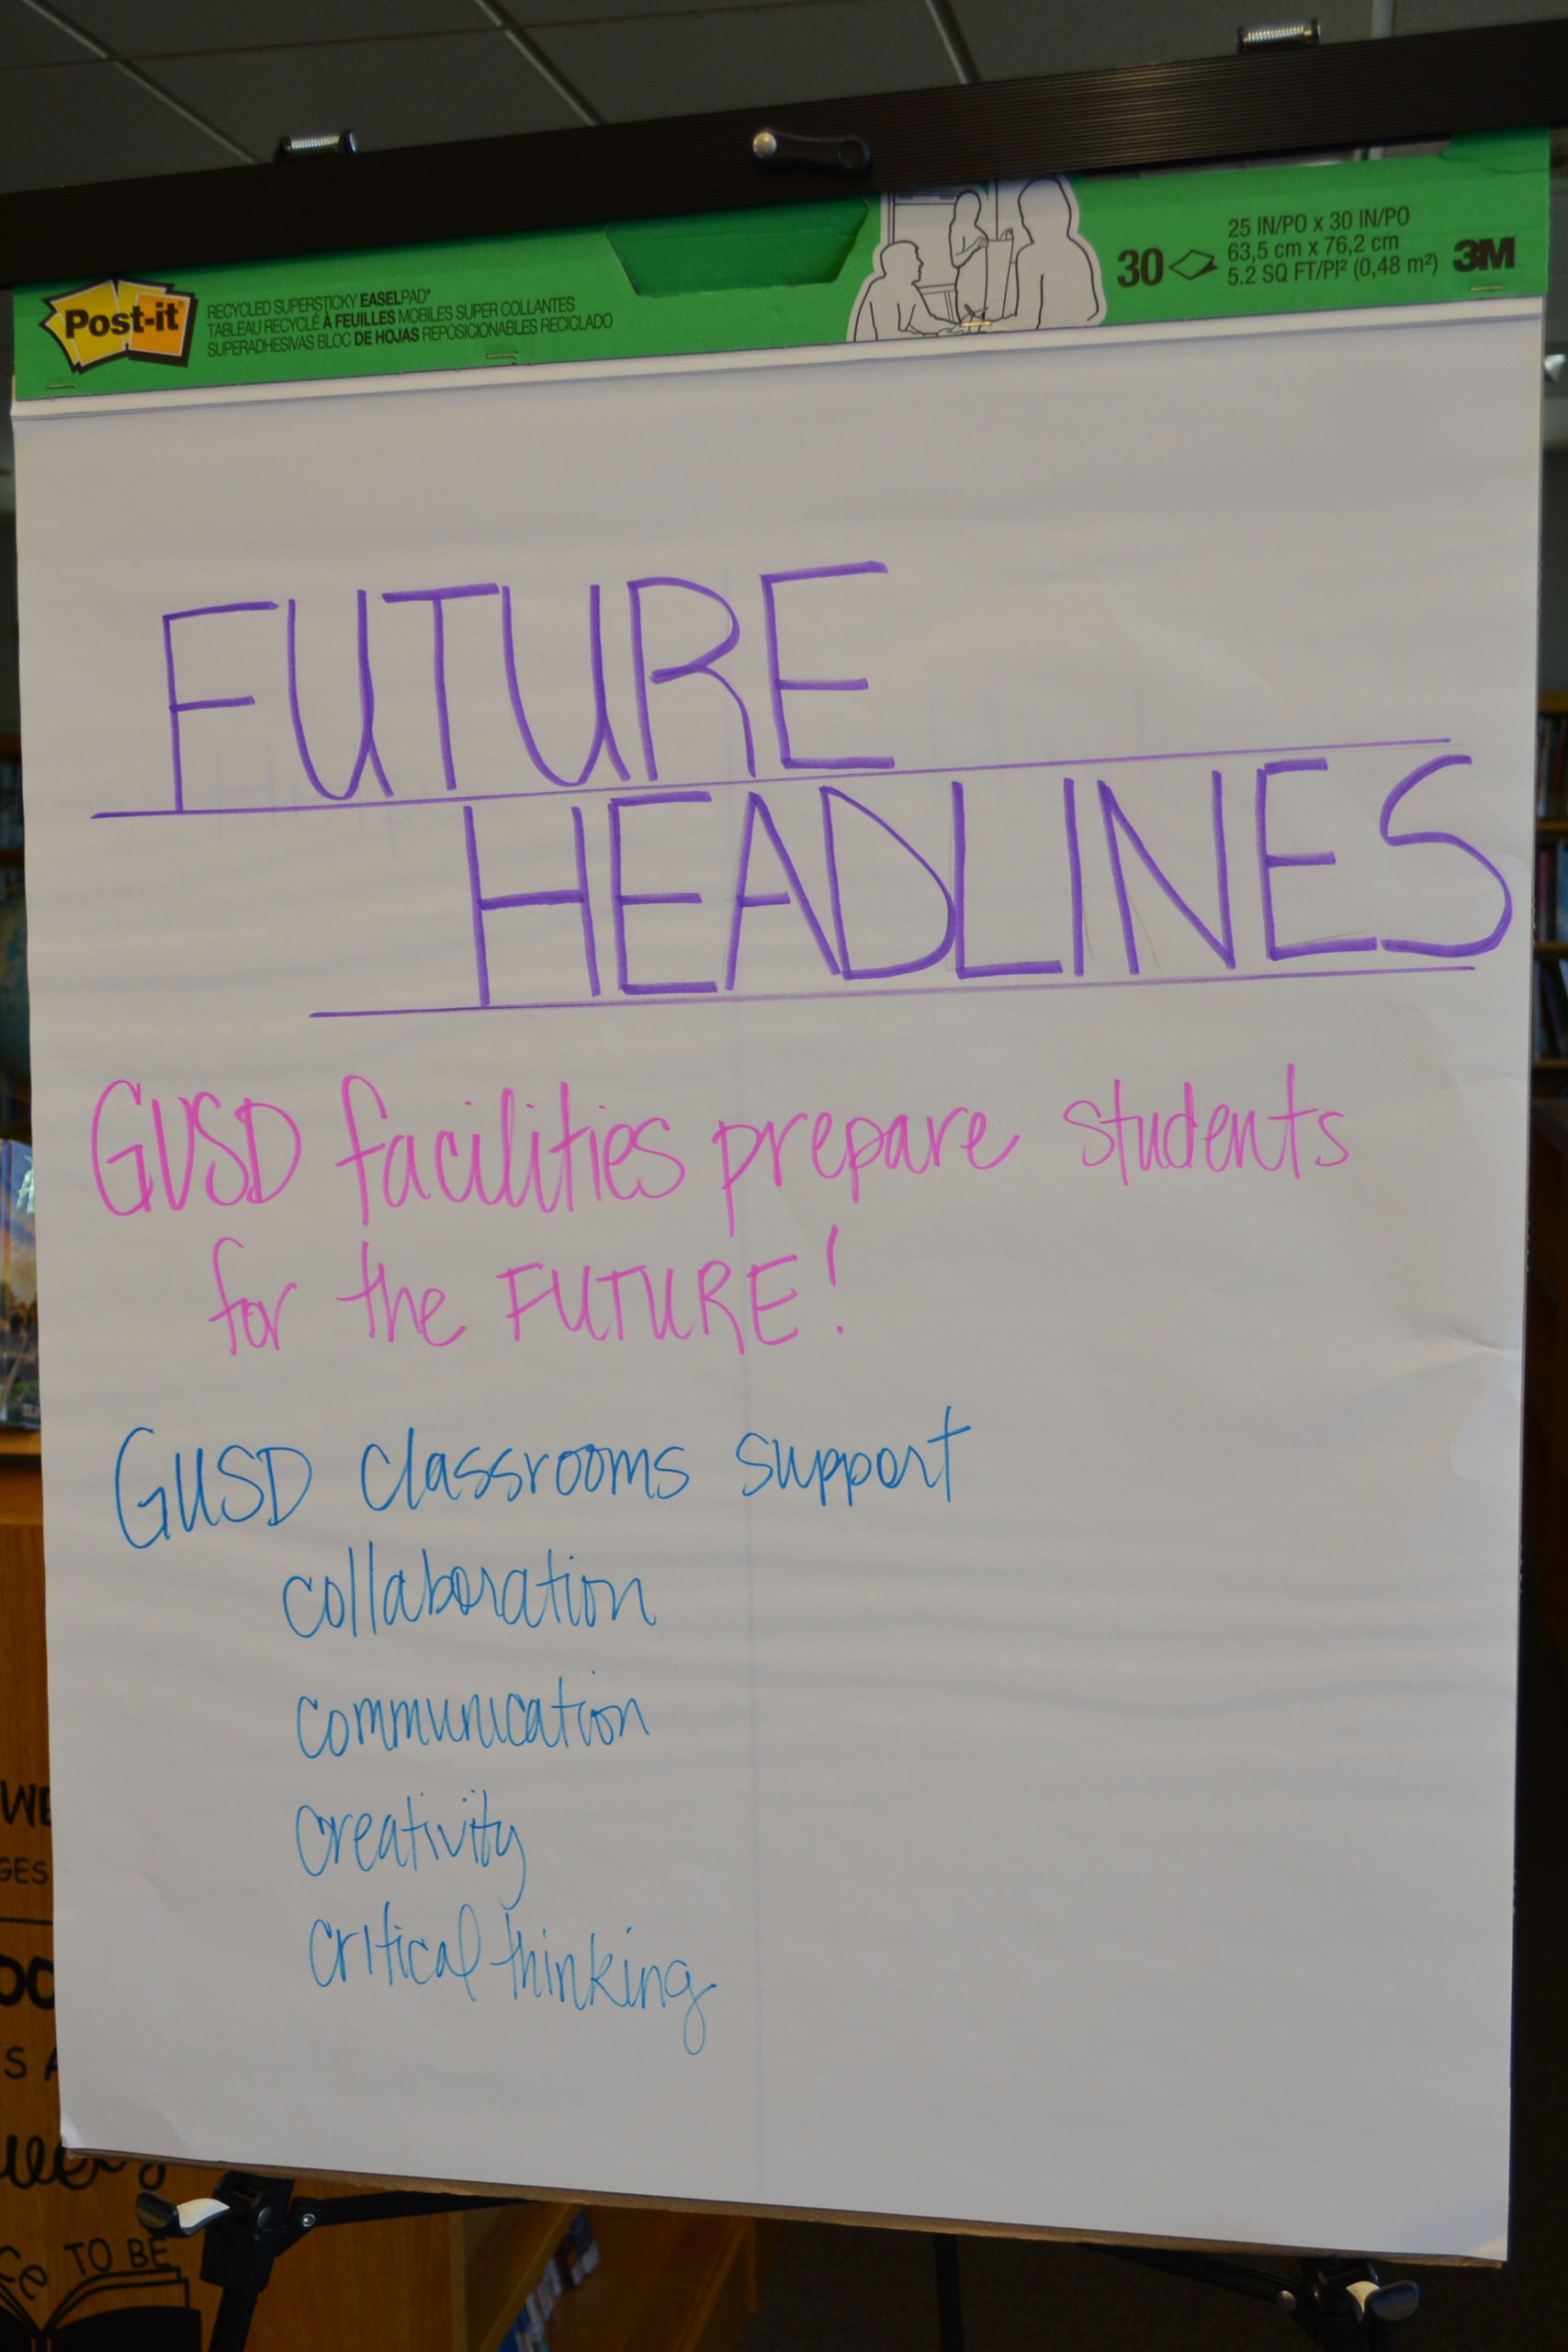 Post-it
RECYCLED SUPERSTICKY EASELPAD*
TABLEAU RECYCLÉ À FEUILLES MOBILES SUPER COLLANTES
SUPERADHESIVAS BLOC DE HOJAS REPOSICIONABLES RECICLADO
30
25 IN/PO x 30 IN/PO
63,5 cm x 76,2 cm
5.2 SQ FT/PI² (0,48 m²)
3M
FUTURE
HEADLINES
GUSD facilities prepare students
for the FUTURE!
GUSD classrooms support
collaboration
communication
creativity
critical thinking
TO BE